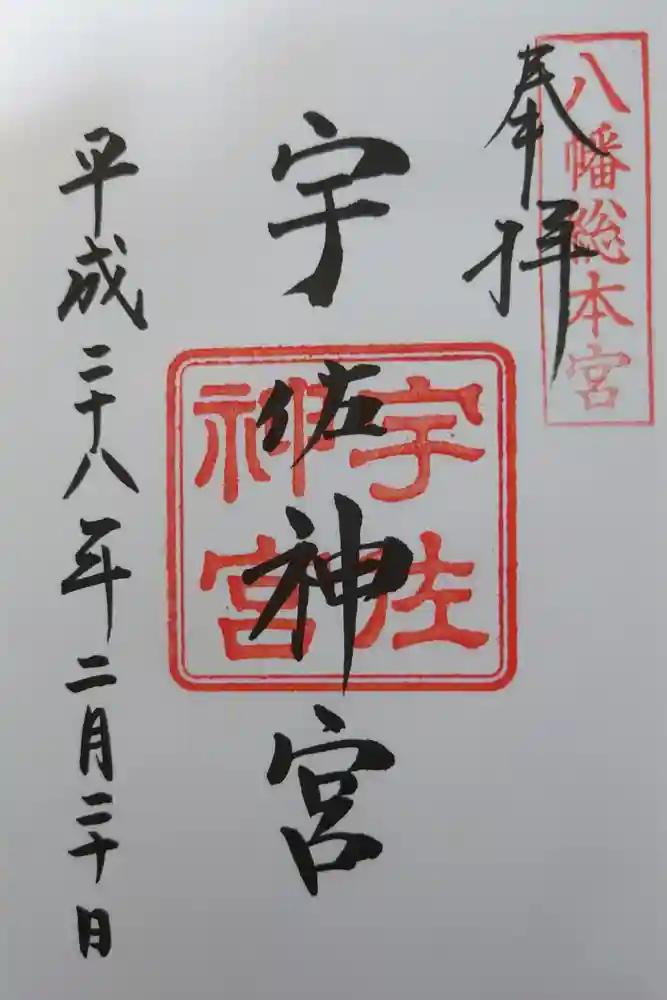 八幡総本宮
奉拝
宇佐神宮
宇佐
神宮
平成二十八年二月二十日